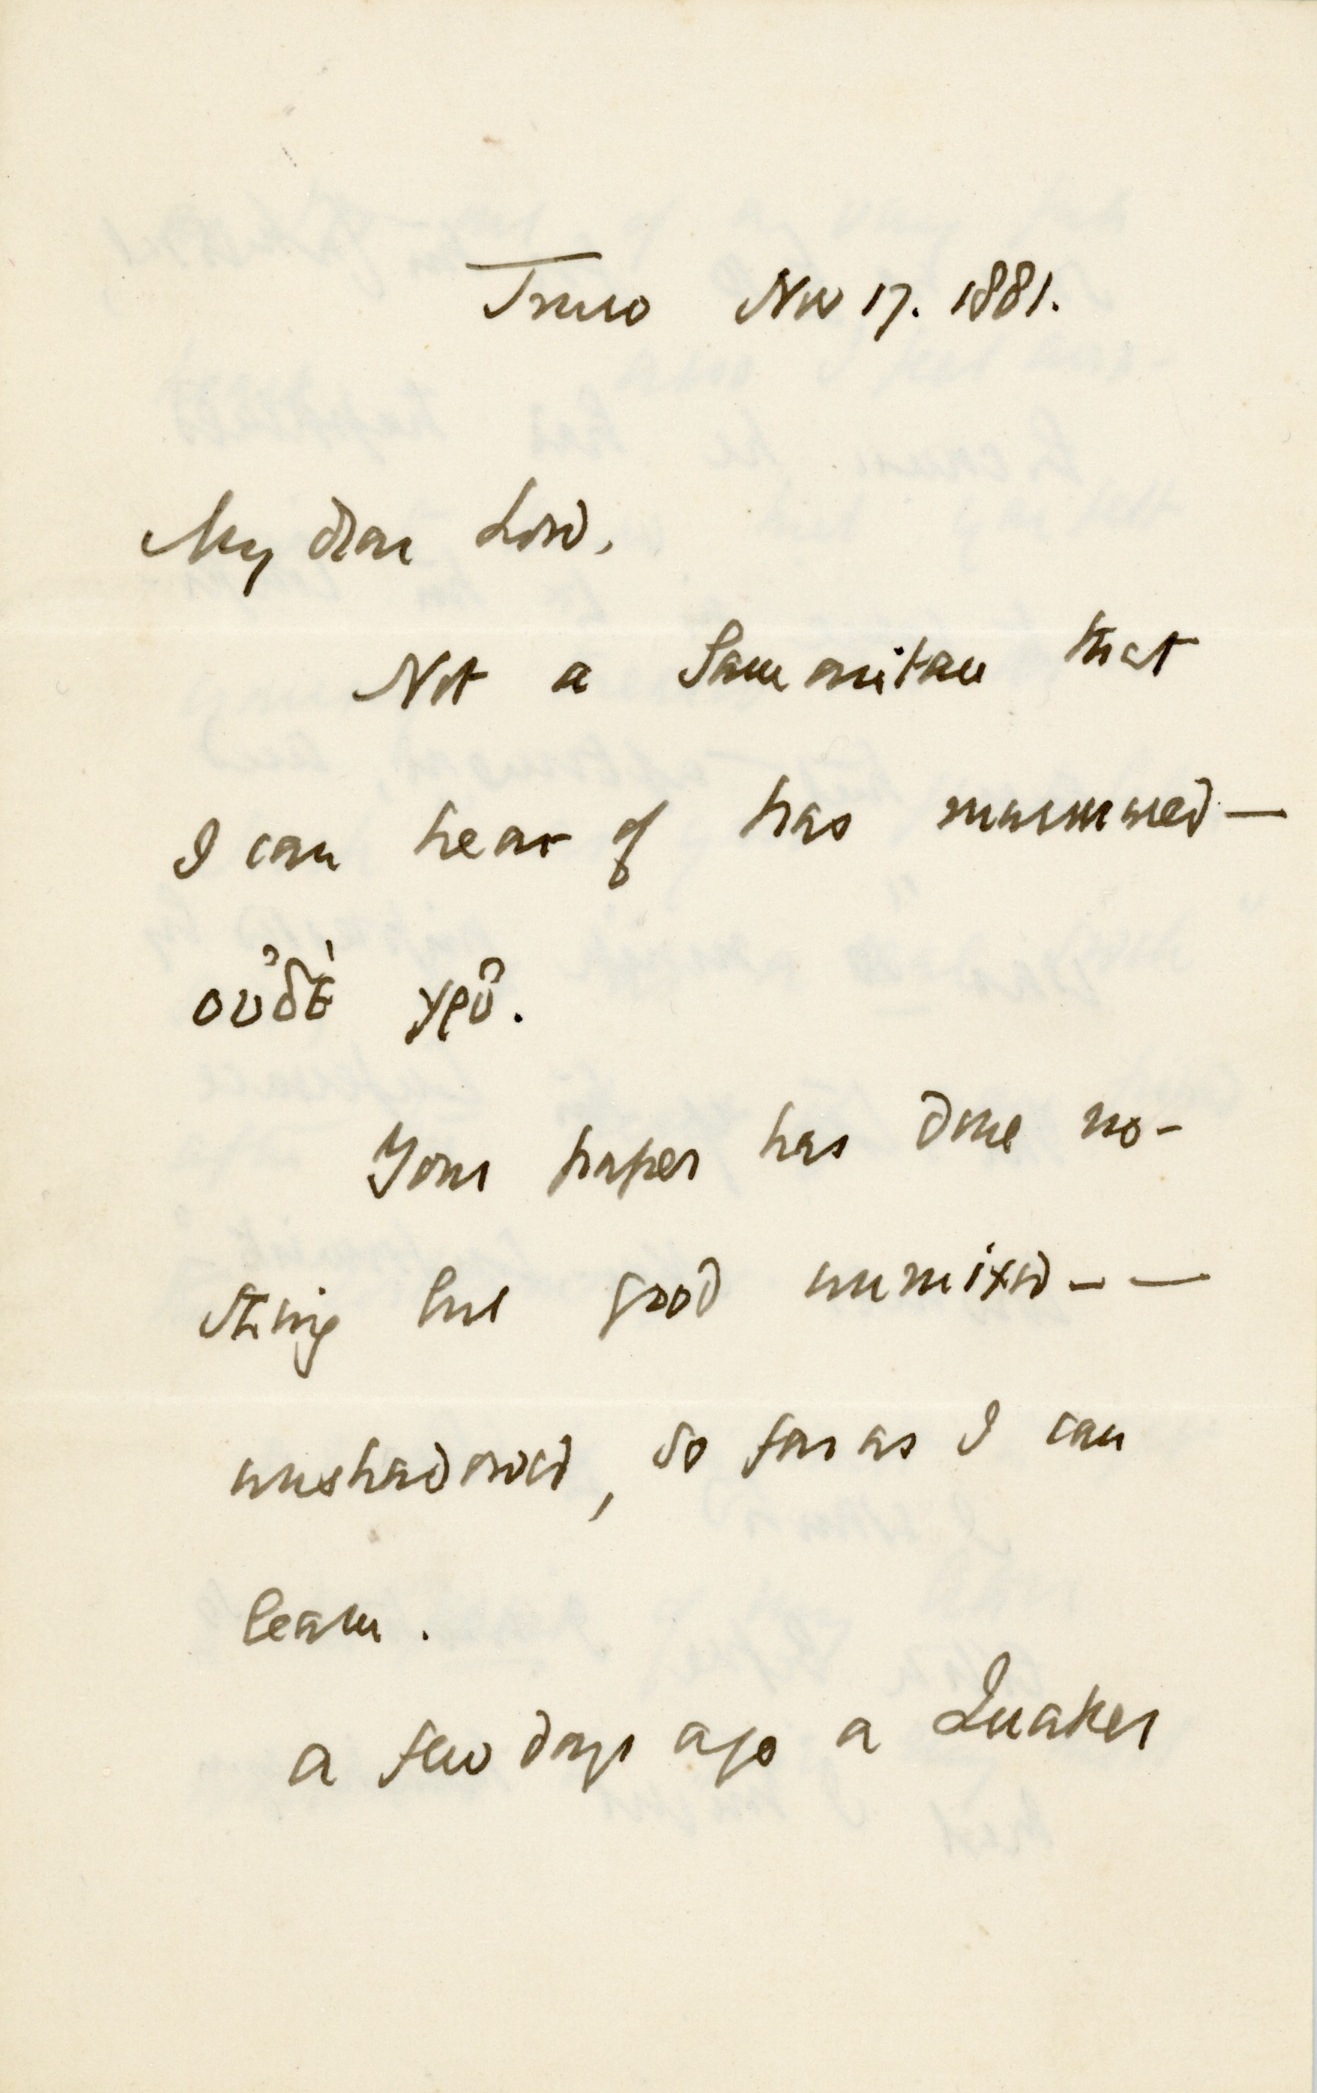 Truro Nov 17. 1881.
My dear Lord,
Not a Samaritan that
I can hear of has murmured —
οὐδὲ γρῦ.
Your paper has done no-
thing but good unmixed - —
unshadowed, so far as I can
learn.
a few days ago a Quaker